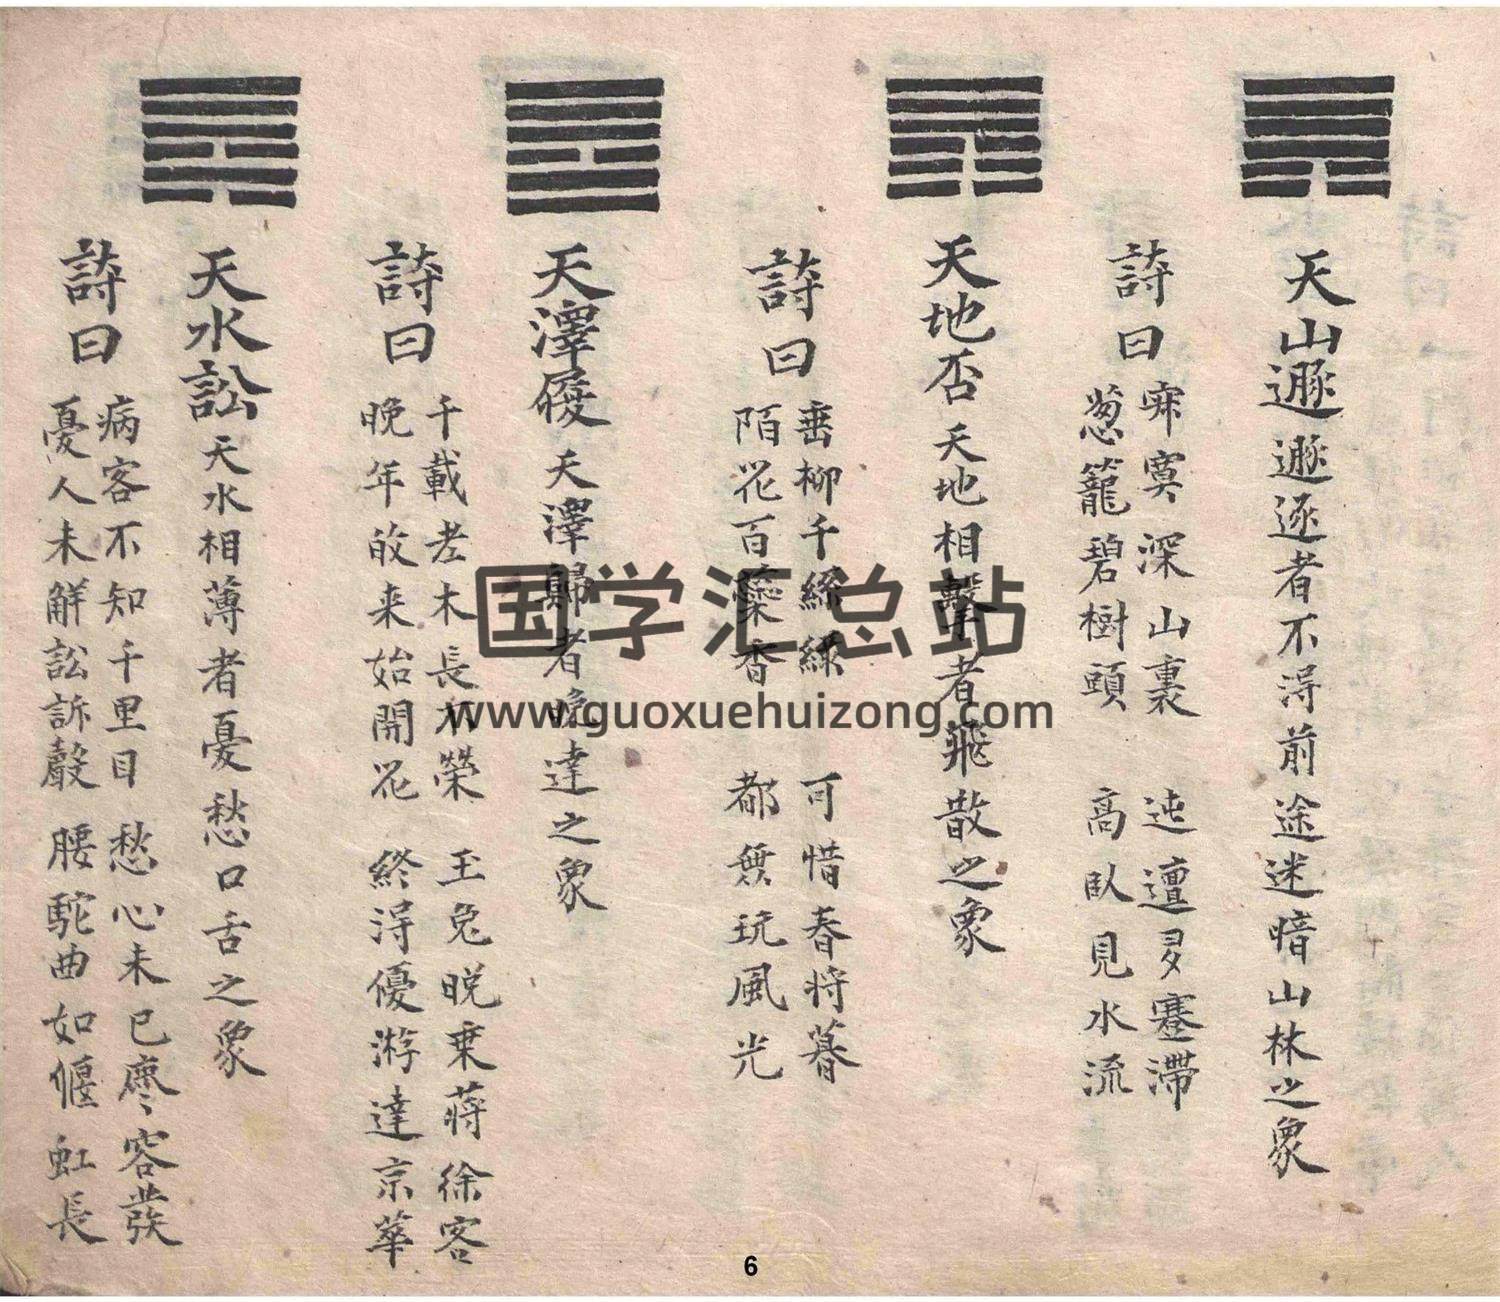 天山遯 遯逐者不得前途迷暗山林之象
詩曰
寂寞深山裏 迍邅多蹇滯
葱籠碧樹頭 高臥見水流
天地否 天地相擊者飛散之象
詩曰
垂柳千絲綠 可惜春将暮
陌花百蘂香 都無玩風光
天澤履 天澤歸者晚達之象
詩曰
千載老木長不榮 玉兔晚乗蔣徐客
晚年故来始開花 終得優游達京華
天水訟 天水相薄者憂愁口舌之象
詩曰
病客不知千里目 愁心未已廖容發
憂人未解訟訴聲 腰駝曲如偃虹長
国学汇总站
www.guoxuehuizong.com
6